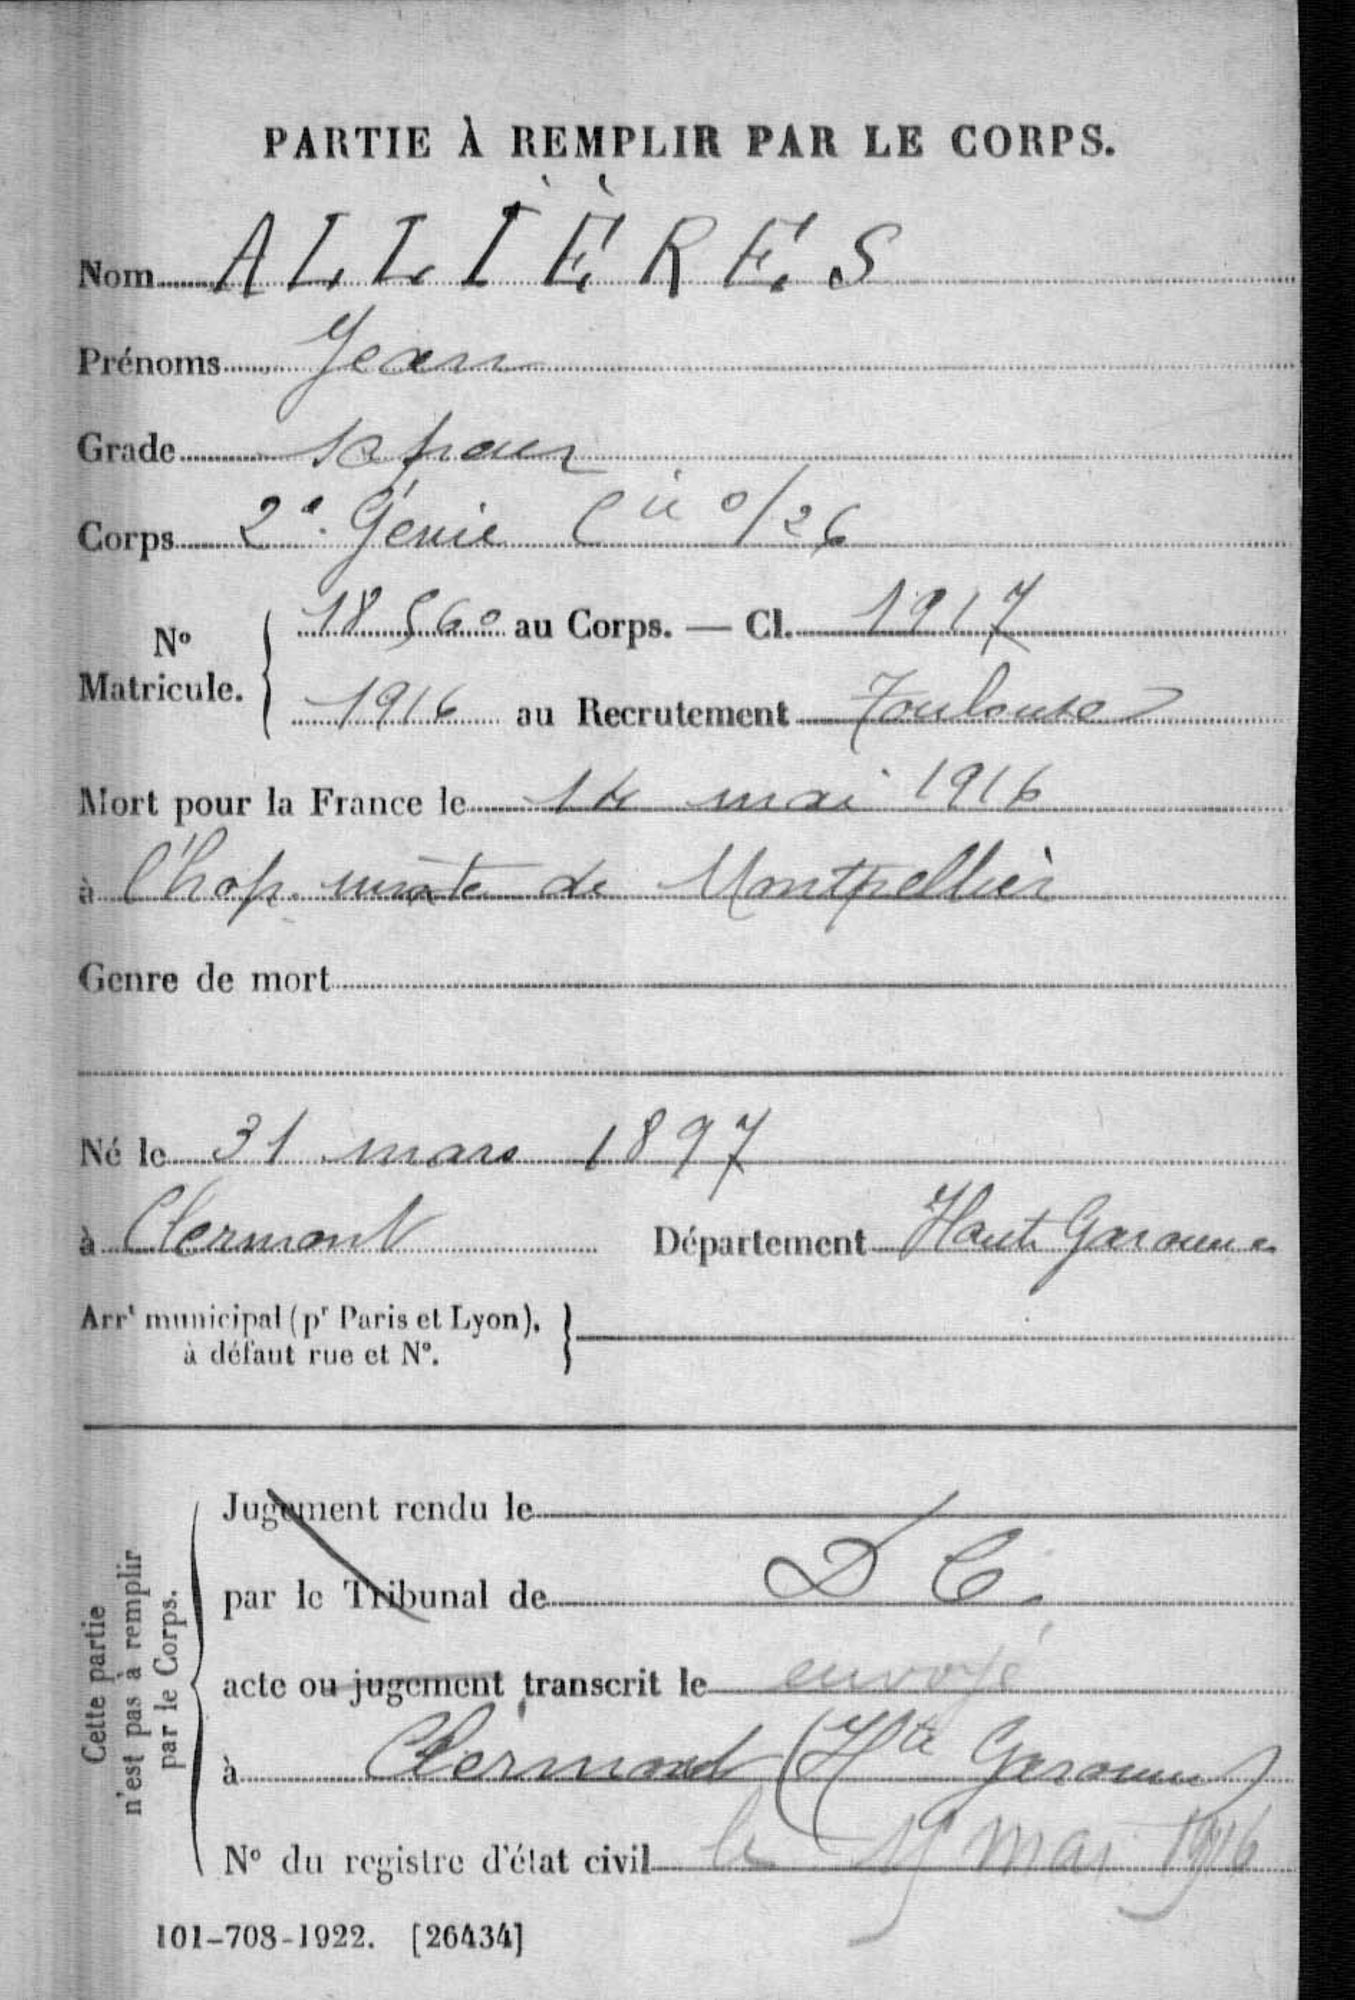 PARTIE À REMPLIR PAR LE CORPS.
Nom ALLIÈRES
Prénoms Jean
Grade sapeur
Corps 2e Génie Cie 0/26
No Matricule. 18560 au Corps. — Cl. 1917
1916 au Recrutement Toulouse
Mort pour la France le 14 mai 1916
à l'hop. mixte de Montpellier
Genre de mort
Né le 31 mars 1897
à Clermont Département Haute Garonne
Arrt municipal (pr Paris et Lyon),
à défaut rue et No.
Cette partie
n'est pas à remplir
par le Corps.
Jugement rendu le
par le Tribunal de D C.
acte ou jugement transcrit le envoyé
à Clermont (Hte Garonne)
No du registre d'état civil le 19 mai 1916
101-708-1922. [26434]